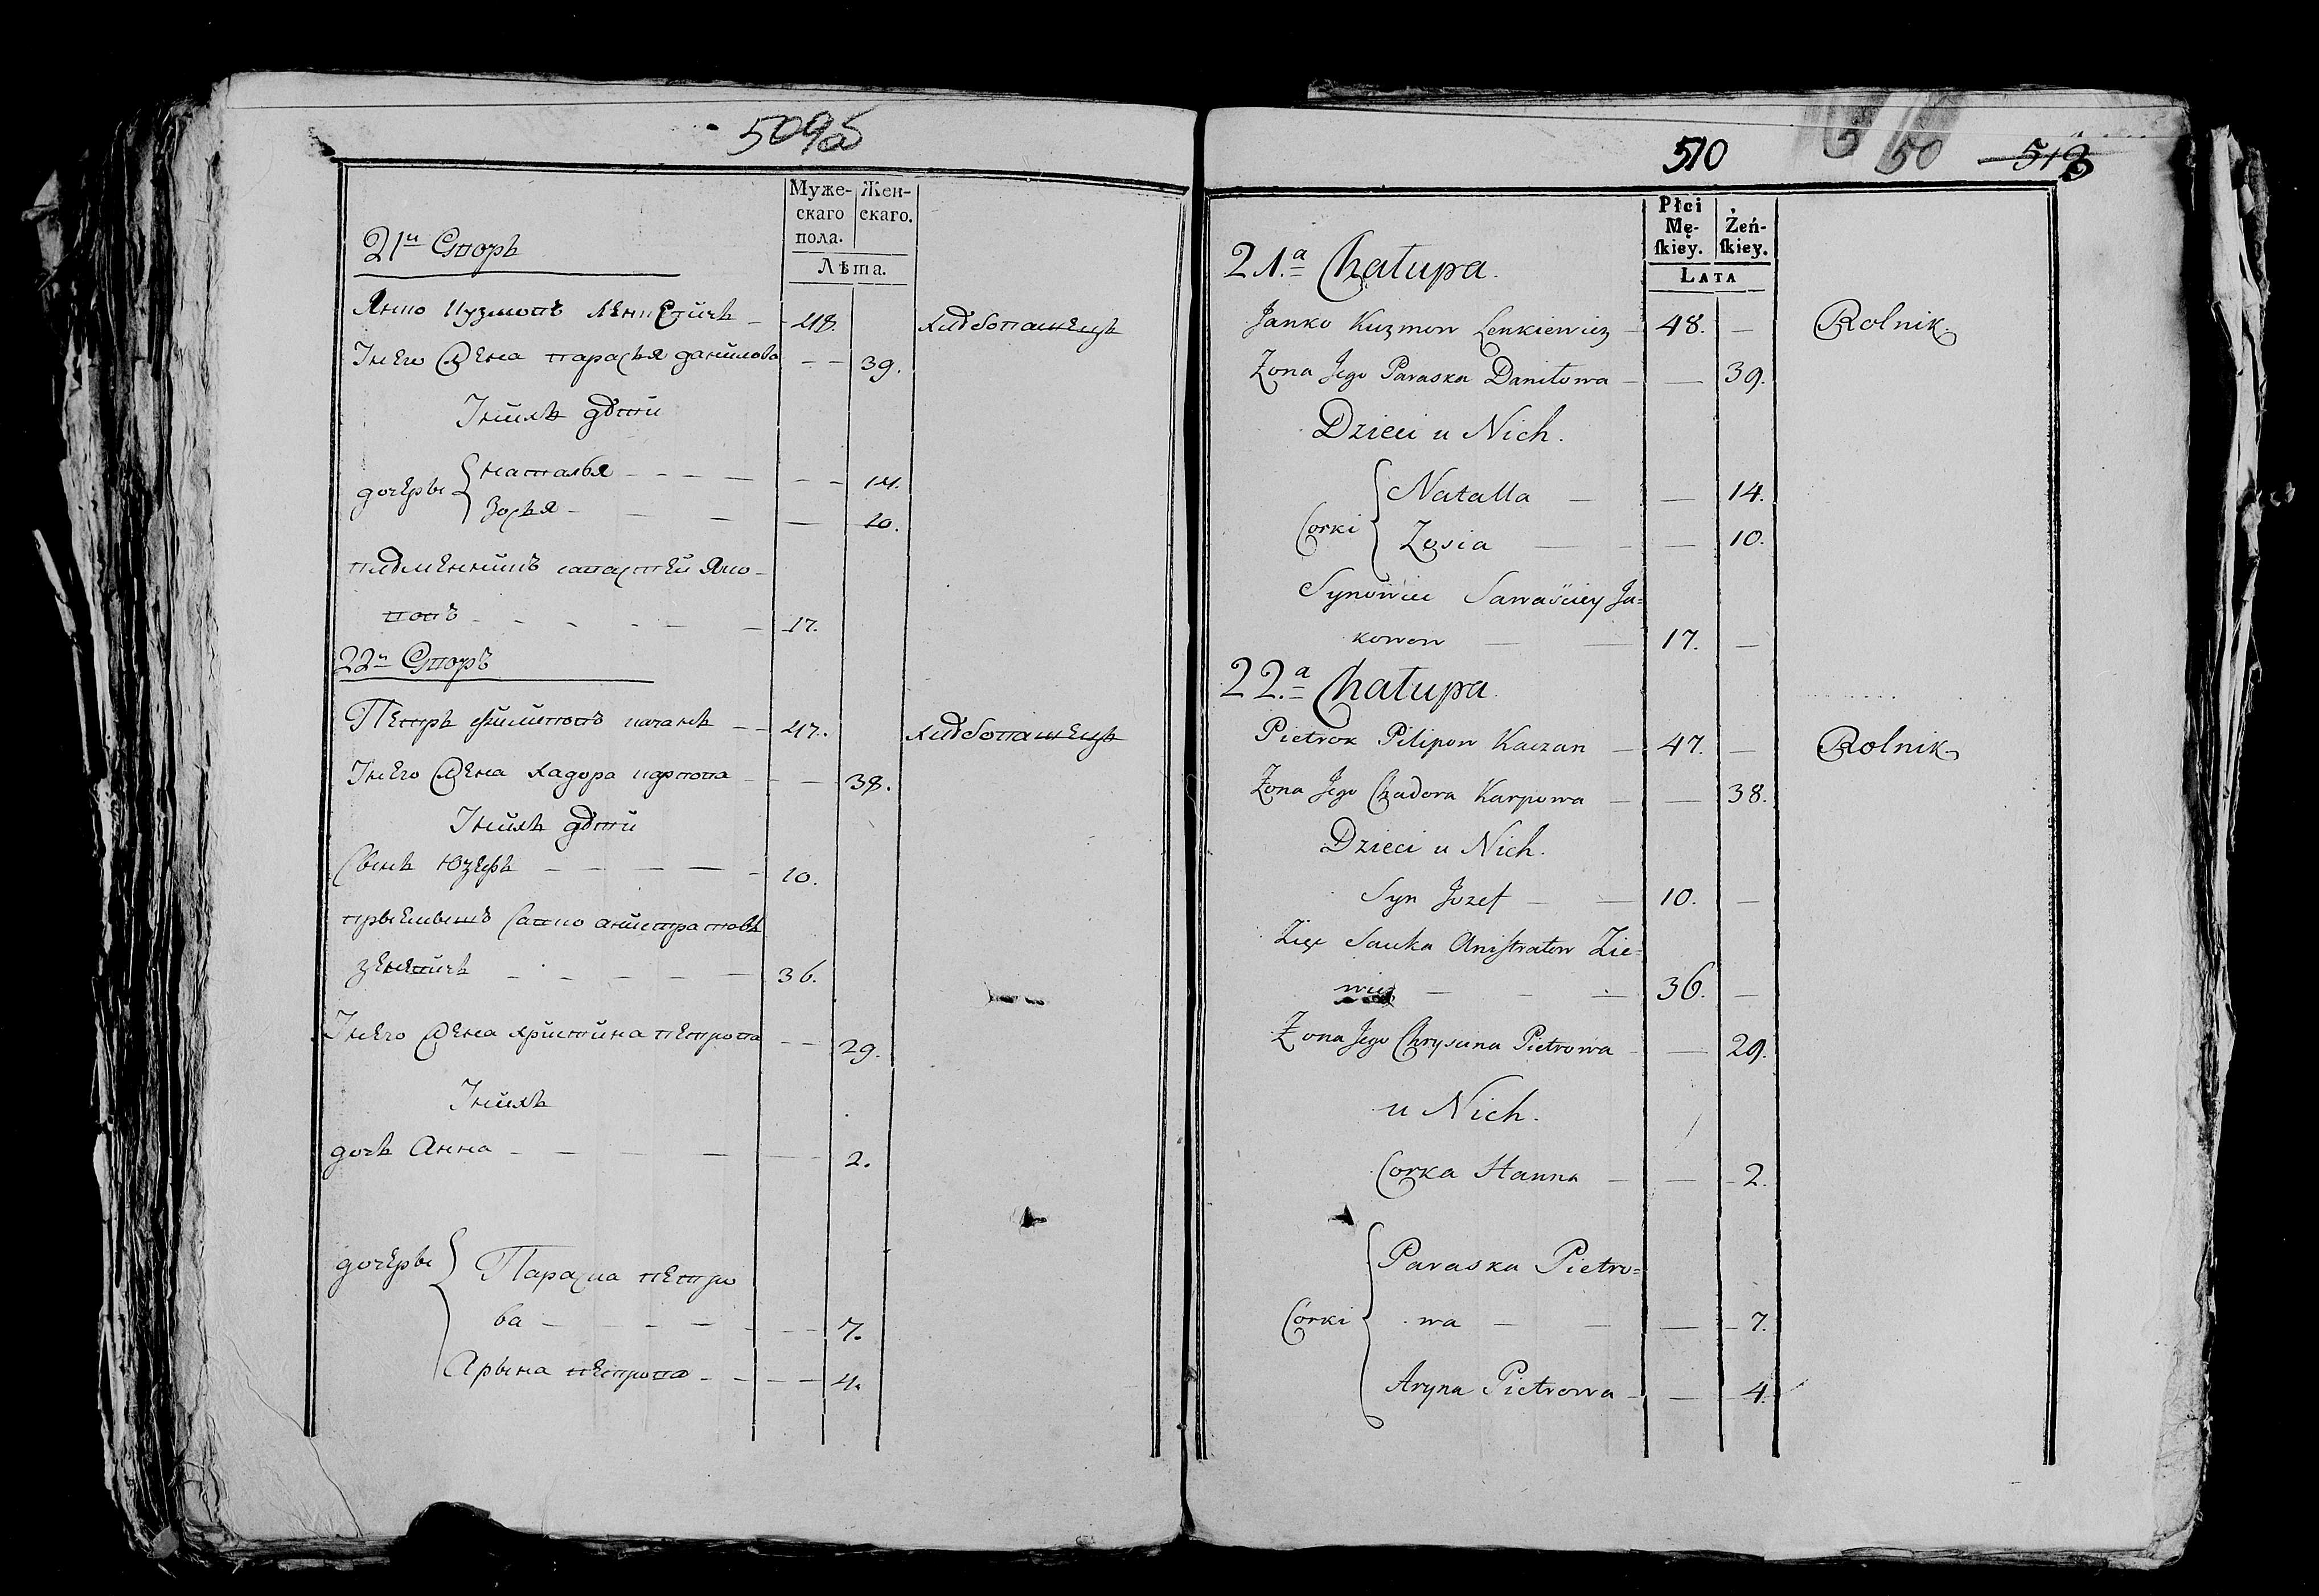 509б
Муже-
скаго
пола.
Жен-
скаго.
Лѣта.
21й Споръ
Янко Кузмовъ Ленкевичъ 48. хлѣбопашецъ
Інего жена Парасья Данилова 39.
Інихъ дѣти
дочеры
Наталья 14.
Зосья 10.
племенникъ Савастей Яко-
вовъ 17.
22й Споръ
Петръ Филиповъ Качанъ 47. хлѣбопашецъ
Інего жена Хадора Карпова 38.
Інихъ дѣти
Сынъ Юзефъ 10.
Савко Анистратовъ
36.
Інего жена Христина Петрова 29.
Інихъ
дочь Анна 2.
дочеры
Параска Петро
ва 7.
Арына Петрова 4.
510 50
Płci
Mę-
ſkiey.
Żeń-
ſkiey.
LATA
21.a Chałupa.
Janko Kuzmow Lenkiewicz 48. Rolnik.
Żona Jego Paraska Daniłowa 39.
Dzieci u Nich.
Corki
Natalla 14.
Zosia 10.
Synowiec Sawaściey Ja=
kowow 17.
22.a Chałupa.
Pietrok Pilipow Kaczan 47. Rolnik
Żona Jego Chadora Karpowa 38.
Dzieci u Nich.
Syn Jozef 10.
Zięc Sauka Anistratow Zie=
wicz 36.
Żona Jego Chrysuna Pietrowa 29.
u Nich.
Corka Hanna 2.
Córki
Paraska Pietro=
wa 7.
Aryna Pietrowa 4.